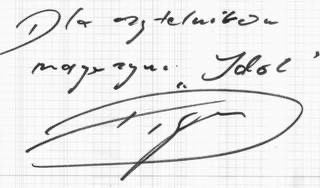 Dla czytelników
magazynu „Idol”